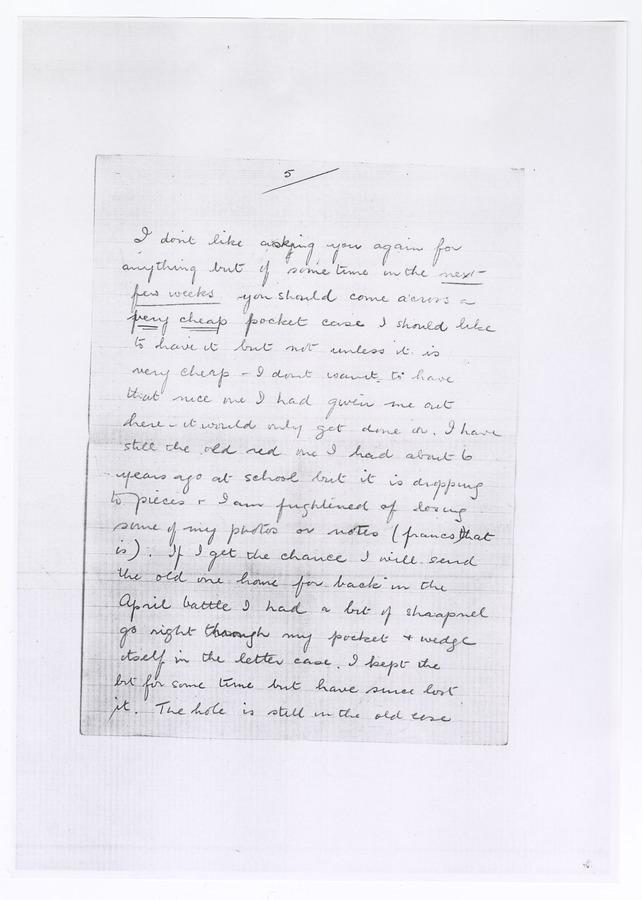 5
I don't like asking you again for
anything but if sometime in the next
few weeks you should come across a
very cheap pocket case I should like
to have it but not unless it is
very cheap - I dont want to have
that nice one I had given me out
here - it would only get done in. I have
still the old red one I had about 6
years ago at school but it is dropping
to pieces + I am frightened of losing
some of my photos or notes (francs that
is). If I get the chance I will send
the old one home for back in the
April battle I had a bit of shrapnel
go right through my pocket + wedge
itself in the letter case. I kept the
bit for some time but have since lost
it. The hole is still in the old case